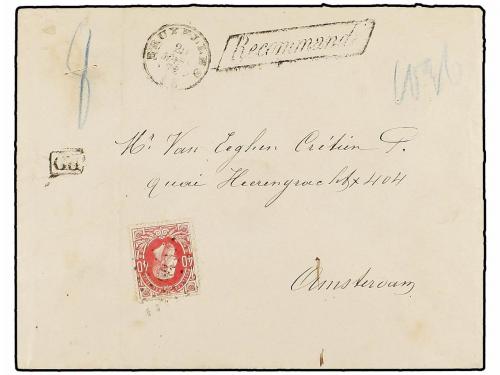 BRUXELLES
Recommandé
PD
Mr. Van Eeghen Crétien P.
quai Heerengracht x 404
40 40
Amsterdam